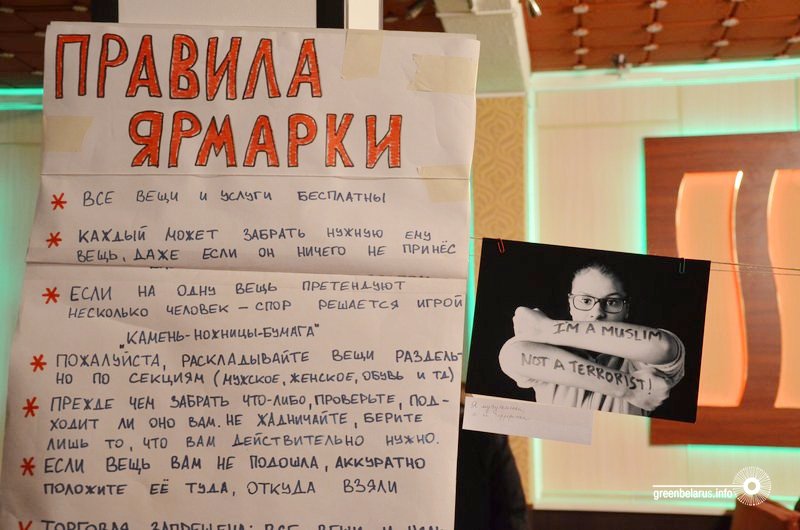 ПРАВИЛА
ЯРМАРКИ
* ВСЕ ВЕЩИ И УСЛУГИ БЕСПЛАТНЫ
* КАЖДЫЙ МОЖЕТ ЗАБРАТЬ НУЖНУЮ ЕМУ
ВЕЩЬ, ДАЖЕ ЕСЛИ ОН НИЧЕГО НЕ ПРИНЁС
* ЕСЛИ НА ОДНУ ВЕЩЬ ПРЕТЕНДУЮТ
НЕСКОЛЬКО ЧЕЛОВЕК – СПОР РЕШАЕТСЯ ИГРОЙ
"КАМЕНЬ-НОЖНИЦЫ-БУМАГА"
* ПОЖАЛУЙСТА, РАСКЛАДЫВАЙТЕ ВЕЩИ РАЗДЕЛЬ-
НО ПО СЕКЦИЯМ (МУЖСКОЕ, ЖЕНСКОЕ, ОБУВЬ И ТД)
* ПРЕЖДЕ ЧЕМ ЗАБРАТЬ ЧТО-ЛИБО, ПРОВЕРЬТЕ, ПОД-
ХОДИТ ЛИ ОНО ВАМ. НЕ ЖАДНИЧАЙТЕ, БЕРИТЕ
ЛИШЬ ТО, ЧТО ВАМ ДЕЙСТВИТЕЛЬНО НУЖНО.
* ЕСЛИ ВЕЩЬ ВАМ НЕ ПОДОШЛА, АККУРАТНО
ПОЛОЖИТЕ ЕЁ ТУДА, ОТКУДА ВЗЯЛИ
* ТОРГОВЛЯ ЗАПРЕЩЕНА: ВСЕ ВЕЩИ И
I'M A MUSLIM
NOT A TERRORIST!
Я мусульманка,
greenbelarus.info